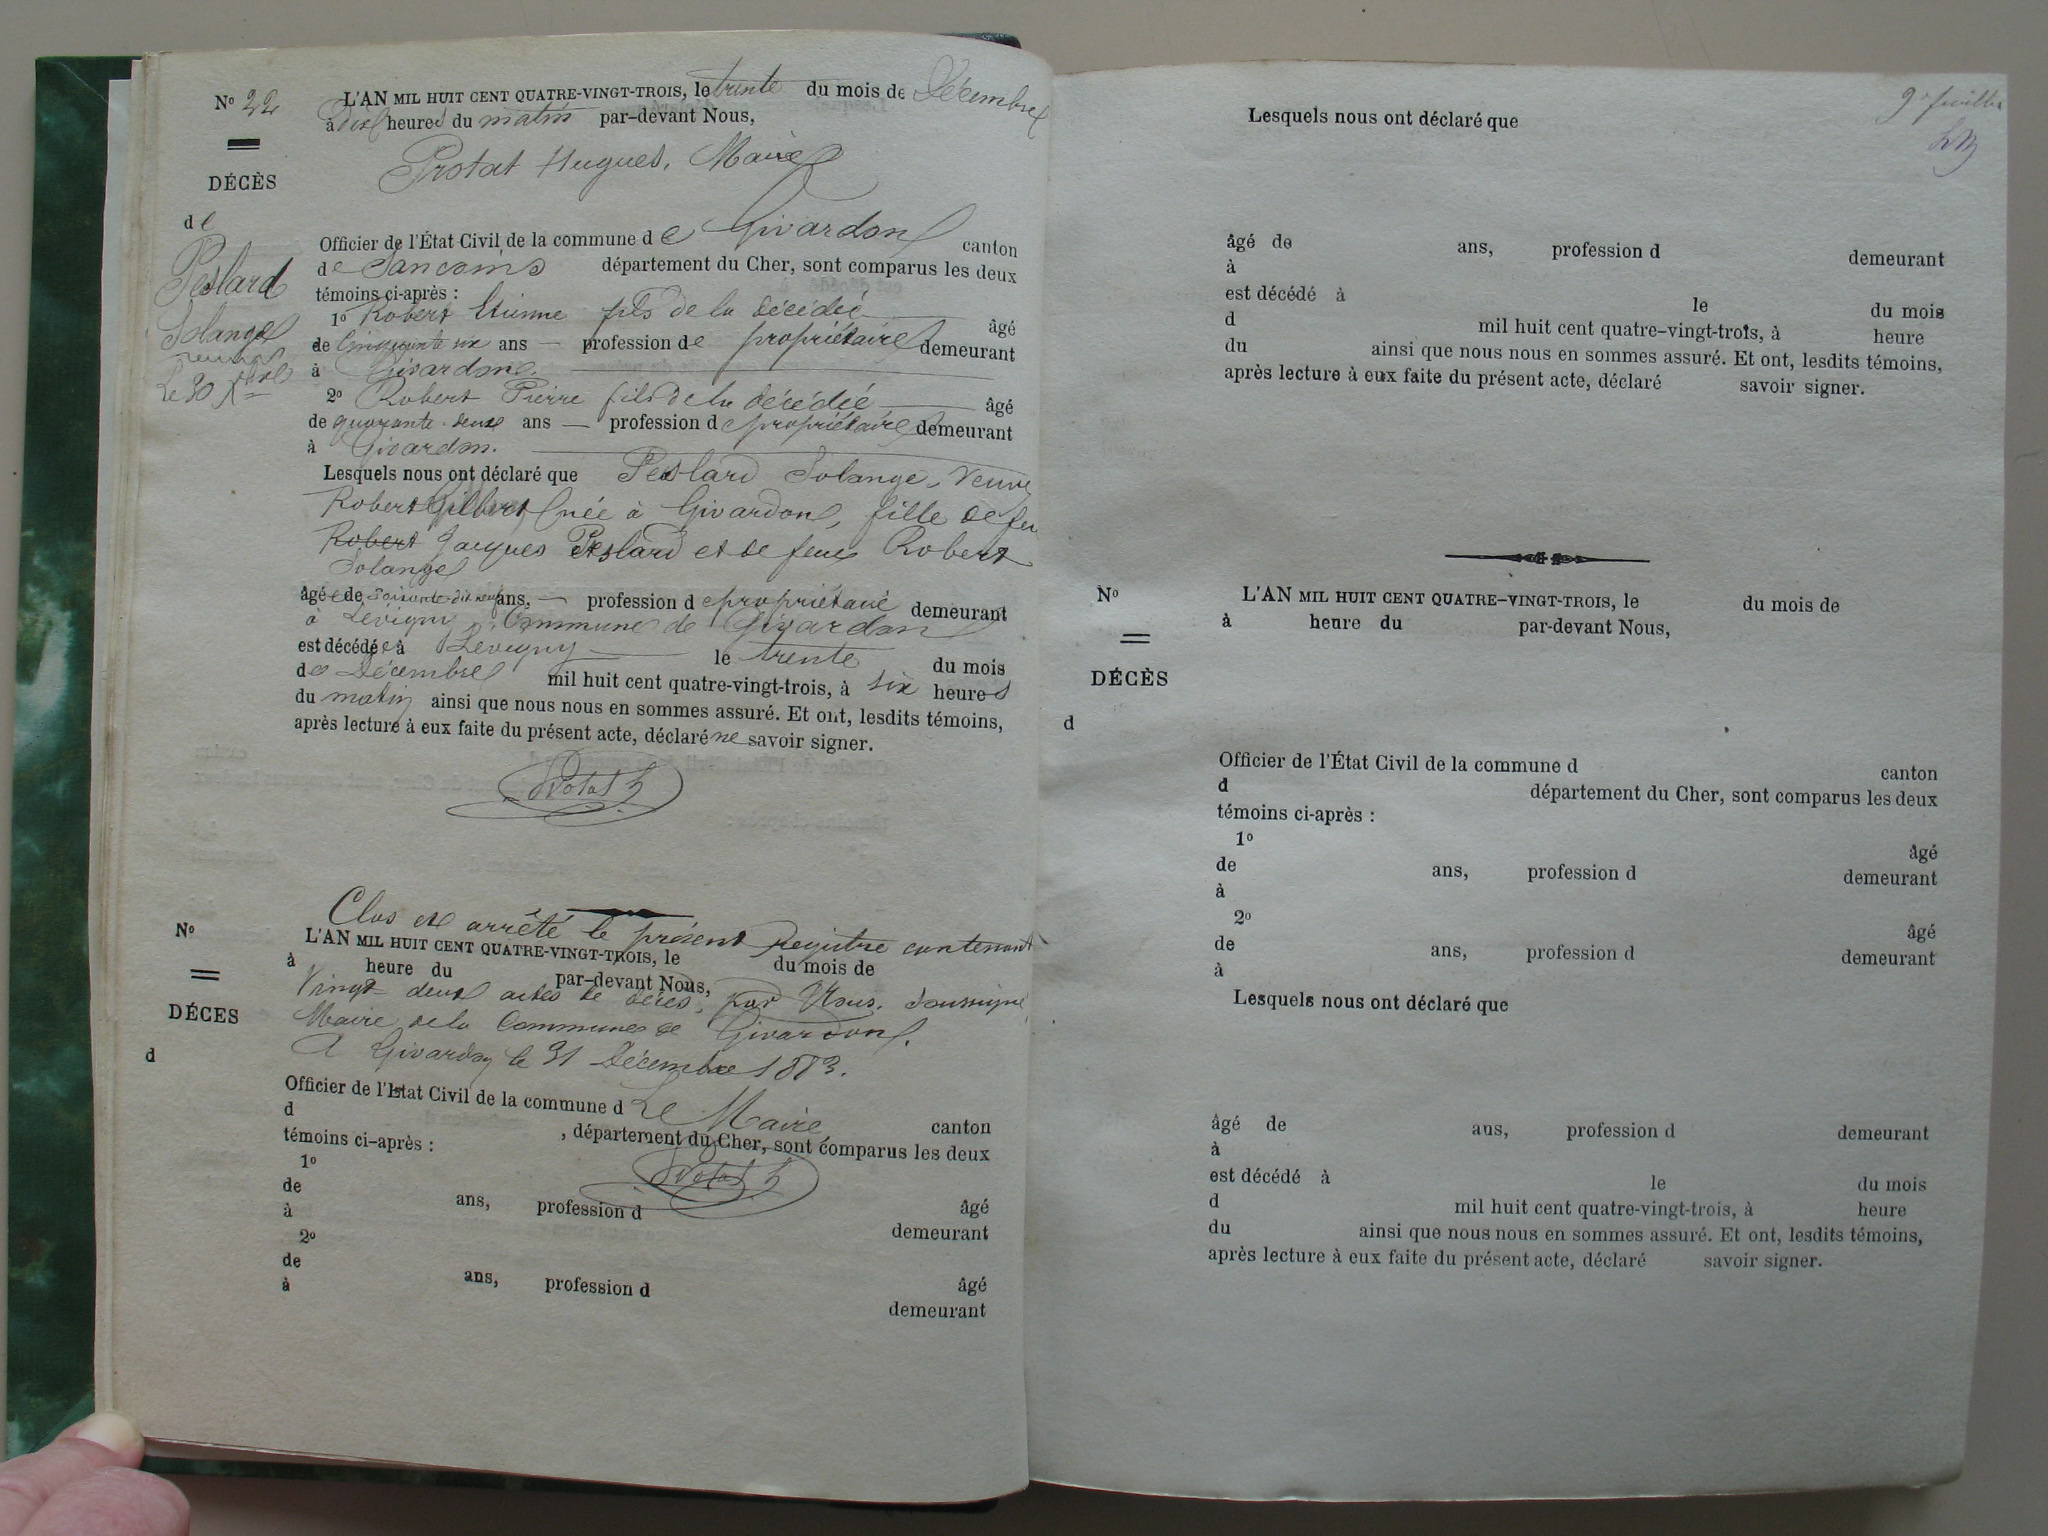 No 22
L'AN MIL HUIT CENT QUATRE-VINGT-TROIS, le trente du mois de Décembre
à dix heures du matin par-devant Nous,
Protat Hugues, Maire
DÉCÈS
de
Peslard
Solange
Le 30 Xbre
Officier de l'État Civil de la commune de Givardon canton
de Sancoins département du Cher, sont comparus les deux
témoins ci-après :
1o Robert Etienne fils de la décédée âgé
de Cinquante six ans — profession de propriétaire demeurant
à Givardon.
2o Robert Pierre fils de la décédée âgé
de quarante-deux ans — profession de propriétaire demeurant
à Givardon.
Lesquels nous ont déclaré que Peslard Solange, Veuve
Robert Gilbert, née à Givardon, fille de feu
Robert Jacques Peslard et de feue Robert
Solange
âgée de soixante-dix neuf ans, — profession de propriétaire demeurant
à Lévigny, Commune de Givardon
est décédée à Levigny le trente du mois
de Décembre mil huit cent quatre-vingt-trois, à six heures
du matin ainsi que nous nous en sommes assuré. Et ont, lesdits témoins,
après lecture à eux faite du présent acte, déclaré ne savoir signer.
Protat h
Clos et arrêté le présent Registre contenant
No
L'AN MIL HUIT CENT QUATRE-VINGT-TROIS, le du mois de
à heure du par-devant Nous,
Vingt deux actes de décès, par Nous, soussigné,
DÉCES
Maire de la Commune de Givardon.
A Givardon le 31 Décembre 1883.
d
Officier de l'Etat Civil de la commune d Le Maire canton
d , département du Cher, sont comparus les deux
témoins ci-après :
Protat h
1o âgé
de ans, profession d demeurant
à
2o âgé
de ans, profession d demeurant
à
9e feuillet
Lesquels nous ont déclaré que
âgé de ans, profession d demeurant
à
est décédé à le du mois
d mil huit cent quatre-vingt-trois, à heure
du ainsi que nous nous en sommes assuré. Et ont, lesdits témoins,
après lecture à eux faite du présent acte, déclaré savoir signer.
No
L'AN MIL HUIT CENT QUATRE-VINGT-TROIS, le du mois de
à heure du par-devant Nous,
DÉCÈS
d
Officier de l'État Civil de la commune d canton
d département du Cher, sont comparus les deux
témoins ci-après :
1o âgé
de ans, profession d demeurant
à
2o âgé
de ans, profession d demeurant
à
Lesquels nous ont déclaré que
âgé de ans, profession d demeurant
à
est décédé à le du mois
d mil huit cent quatre-vingt-trois, à heure
du ainsi que nous nous en sommes assuré. Et ont, lesdits témoins,
après lecture à eux faite du présent acte, déclaré savoir signer.